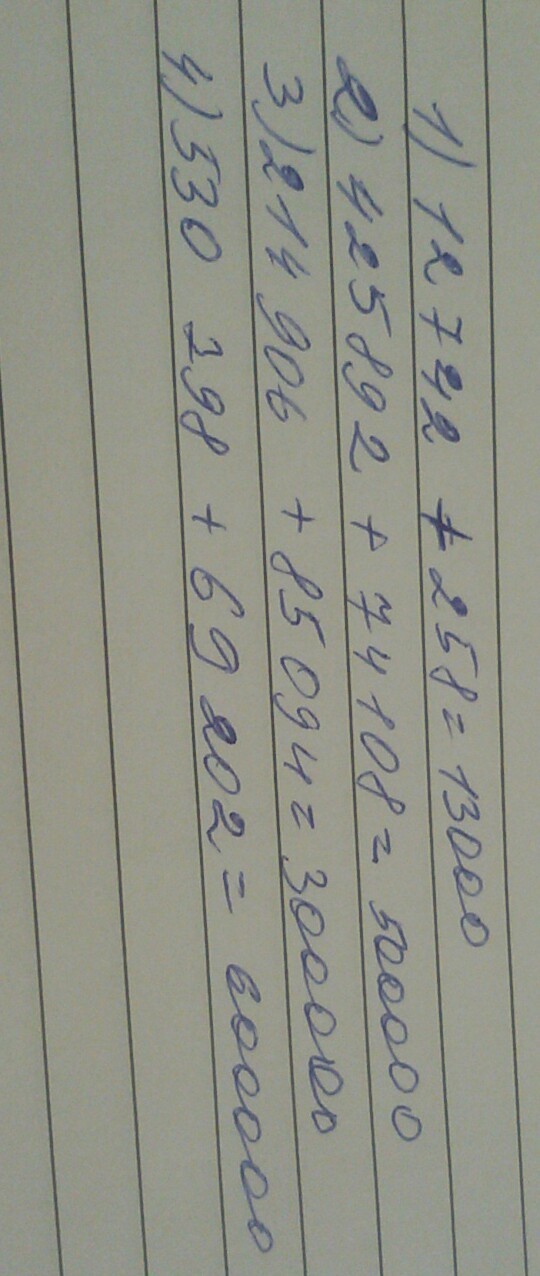 1) 12742 + 258 = 13000
2) 425892 + 74108 = 500000
3) 214 906 + 85094 = 300000
4) 530 798 + 69 202 = 600000